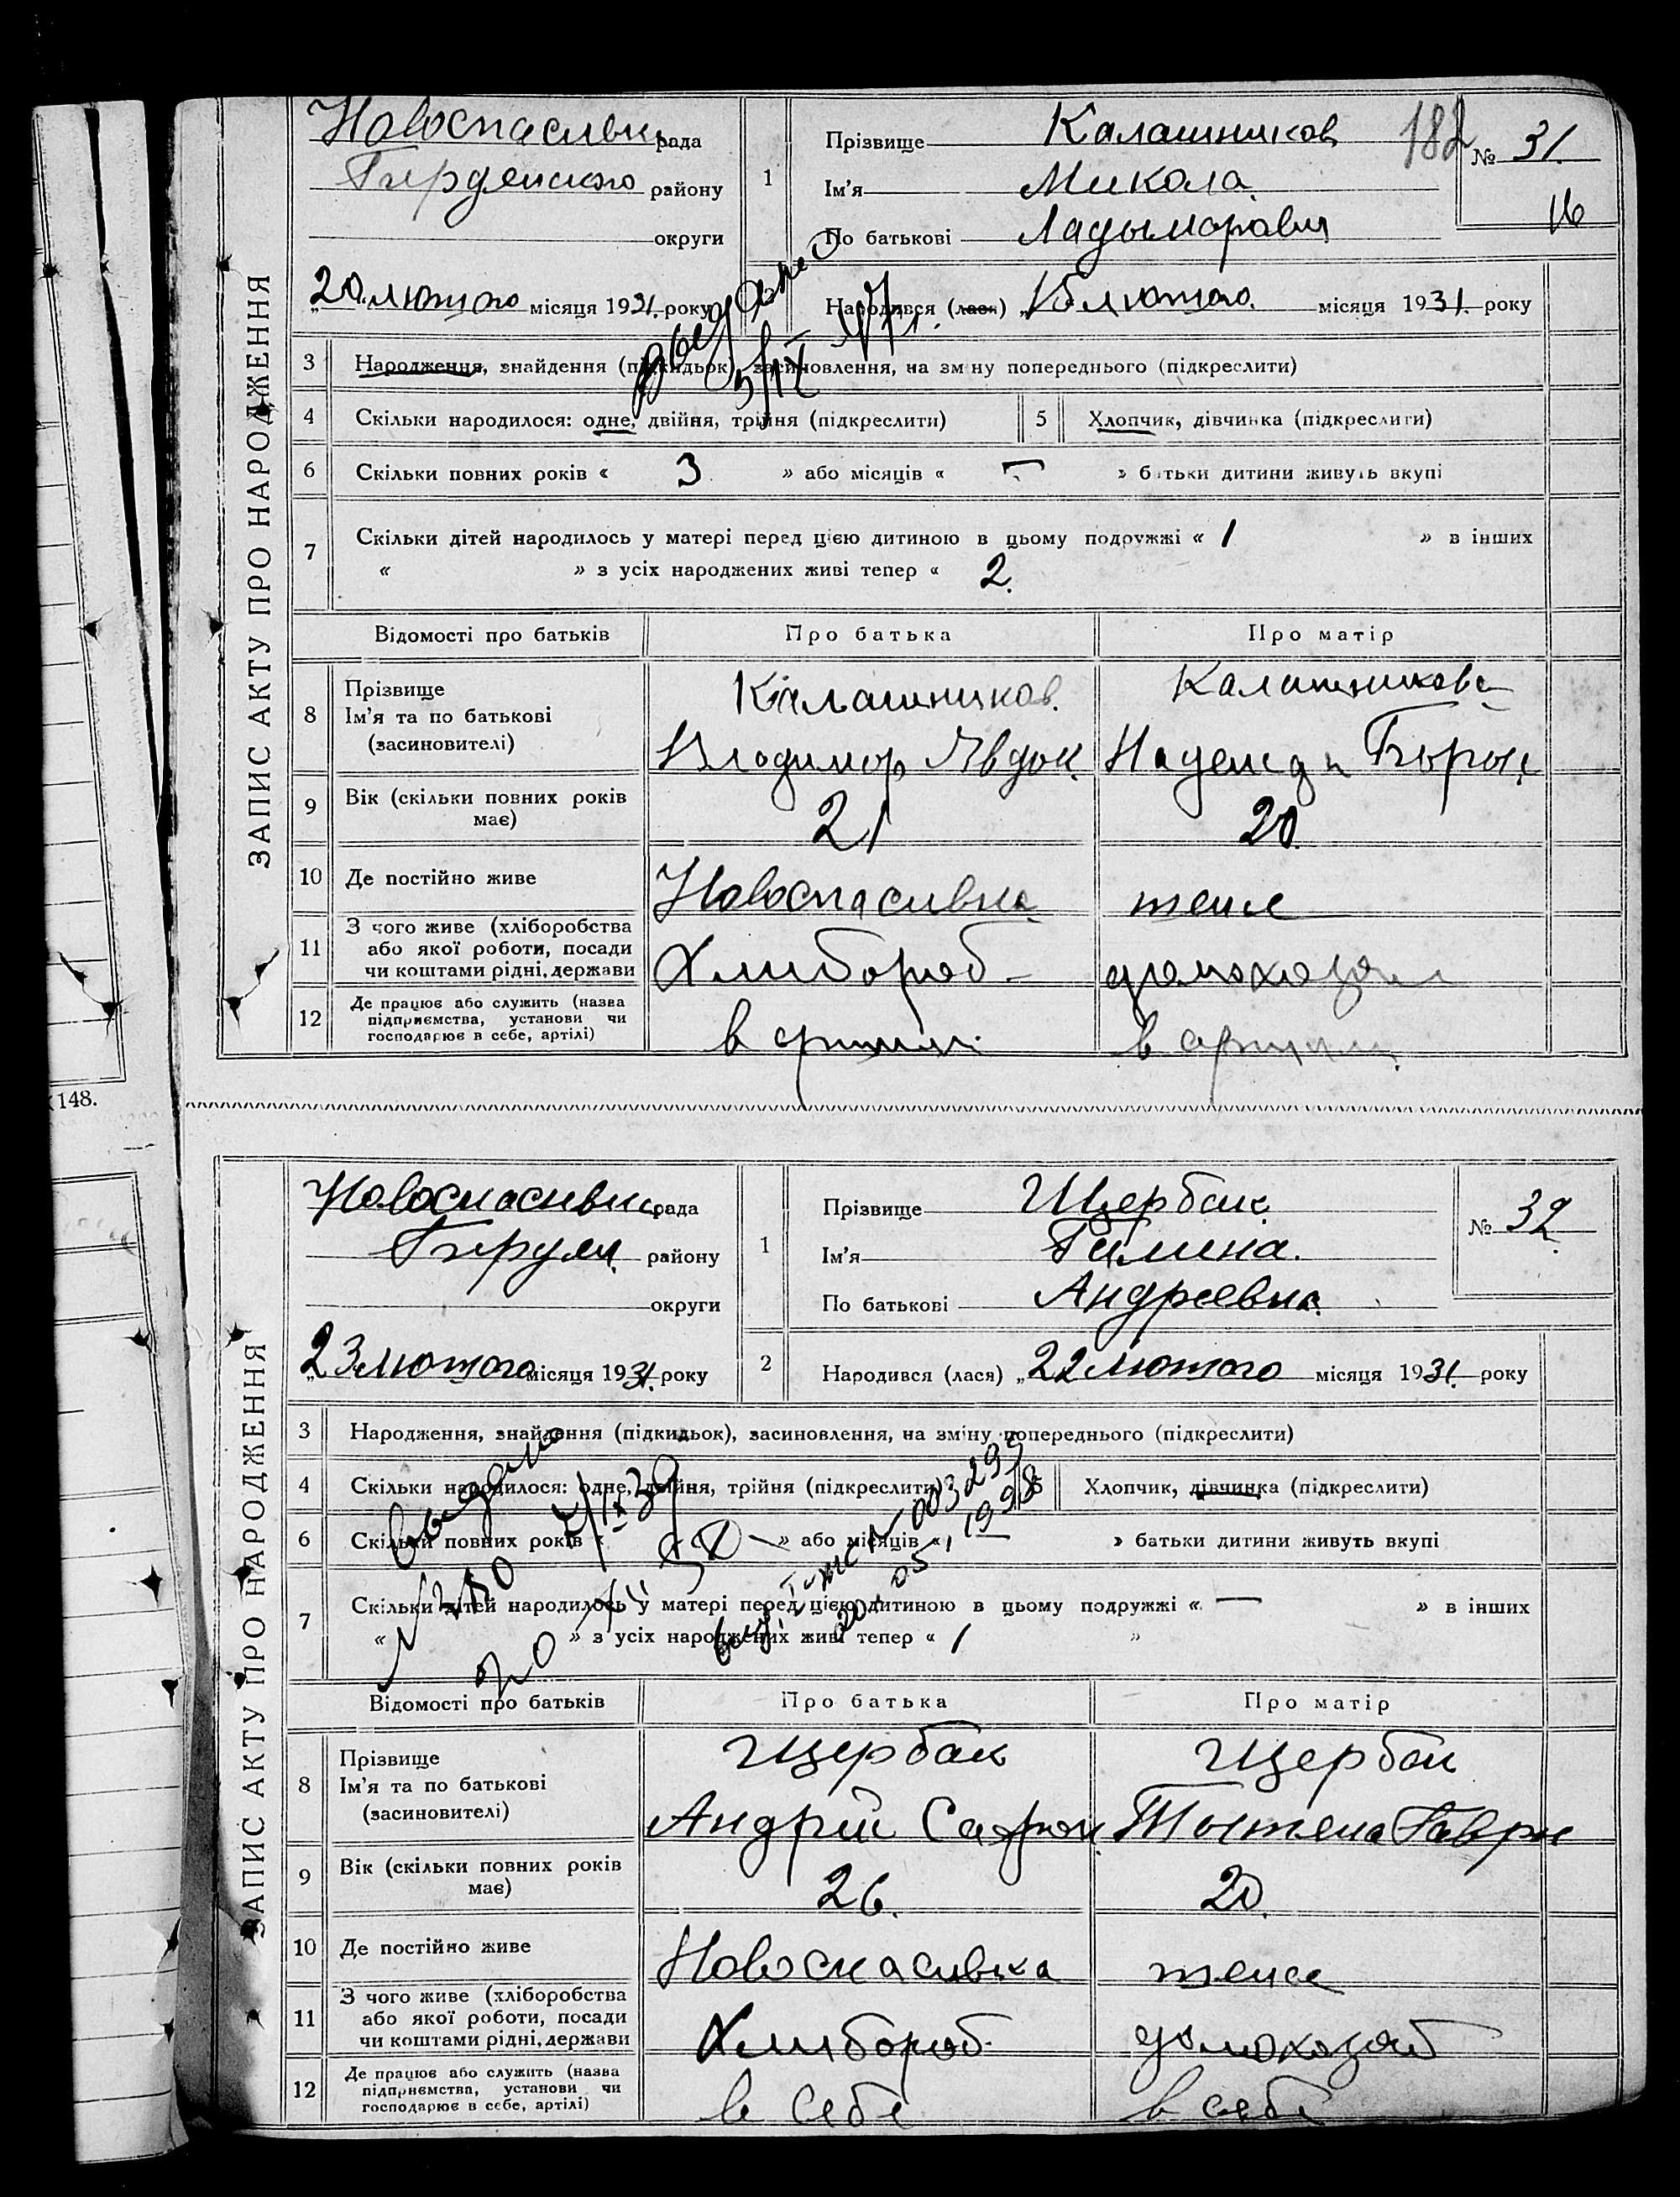 148.
ЗАПИС АКТУ ПРО НАРОДЖЕННЯ
Новоспасивки рада
Бердянского району
округи
20 лютого місяця 1931 року
1
Прізвище Калашников
Ім'я Микола
По батькові
182
№ 31.
16
Народився (лася) „ лютого місяця 1931. року
видано
5/IX
3 Народження, знайдення (підкидьок), засиновлення, на зміну попереднього (підкреслити)
4 Скільки народилося: одне, двійня, трійня (підкреслити) 5 Хлопчик, дівчинка (підкреслити)
6 Скільки повних років « 3 » або місяців « — » батьки дитини живуть вкупі
7 Скільки дітей народилось у матері перед цією дитиною в цьому подружжі « 1 » в інших
« » з усіх народжених живі тепер « 2.
Відомості про батьків Про батька Про матір
8 Прізвище
Ім'я та по батькові
(засиновителі)
Калашников. Калашникова
Владимор Явдок. Надежда
9 Вік (скільки повних років має) 21 20.
10 Де постійно живе Новоспасивка теже
11 З чого живе (хліборобства
або якої роботи, посади
чи коштами рідні, держави
Хлибороб домохозя
12 Де працює або служить (назва
підприємства, установи чи
господарює в себе, артілі)
в артили в артили
ЗАПИС АКТУ ПРО НАРОДЖЕННЯ
Новоспасивки рада
Бердян. району
округи
23 лютого місяця 1931. року
1
Прізвище Щербак
Ім'я Галина.
По батькові Андреевна
№ 32.
2 Народився (лася) „ 22 лютого місяця 1931. року
3 Народження, знайдення (підкидьок), засиновлення, на зміну попереднього (підкреслити)
4 Скільки народилося: одне, двійня, трійня (підкреслити) 5 Хлопчик, дівчинка (підкреслити)
6 Скільки повних років « » або місяців « » батьки дитини живуть вкупі
7 Скільки дітей народилось у матері перед цією дитиною в цьому подружжі « — » в інших
« » з усіх народжених живі тепер « 1 »
видано
7/IX 39
20.05.1998
Відомості про батьків Про батька Про матір
8 Прізвище
Ім'я та по батькові
(засиновителі)
Щербак Щербак
Андрій Сафрон. Тытяна Гаври
9 Вік (скільки повних років має) 26. 20.
10 Де постійно живе Новоспасивка теже
11 З чого живе (хліборобства
або якої роботи, посади
чи коштами рідні, держави
Хлибороб. домохозяй
12 Де працює або служить (назва
підприємства, установи чи
господарює в себе, артілі)
в себе в себе